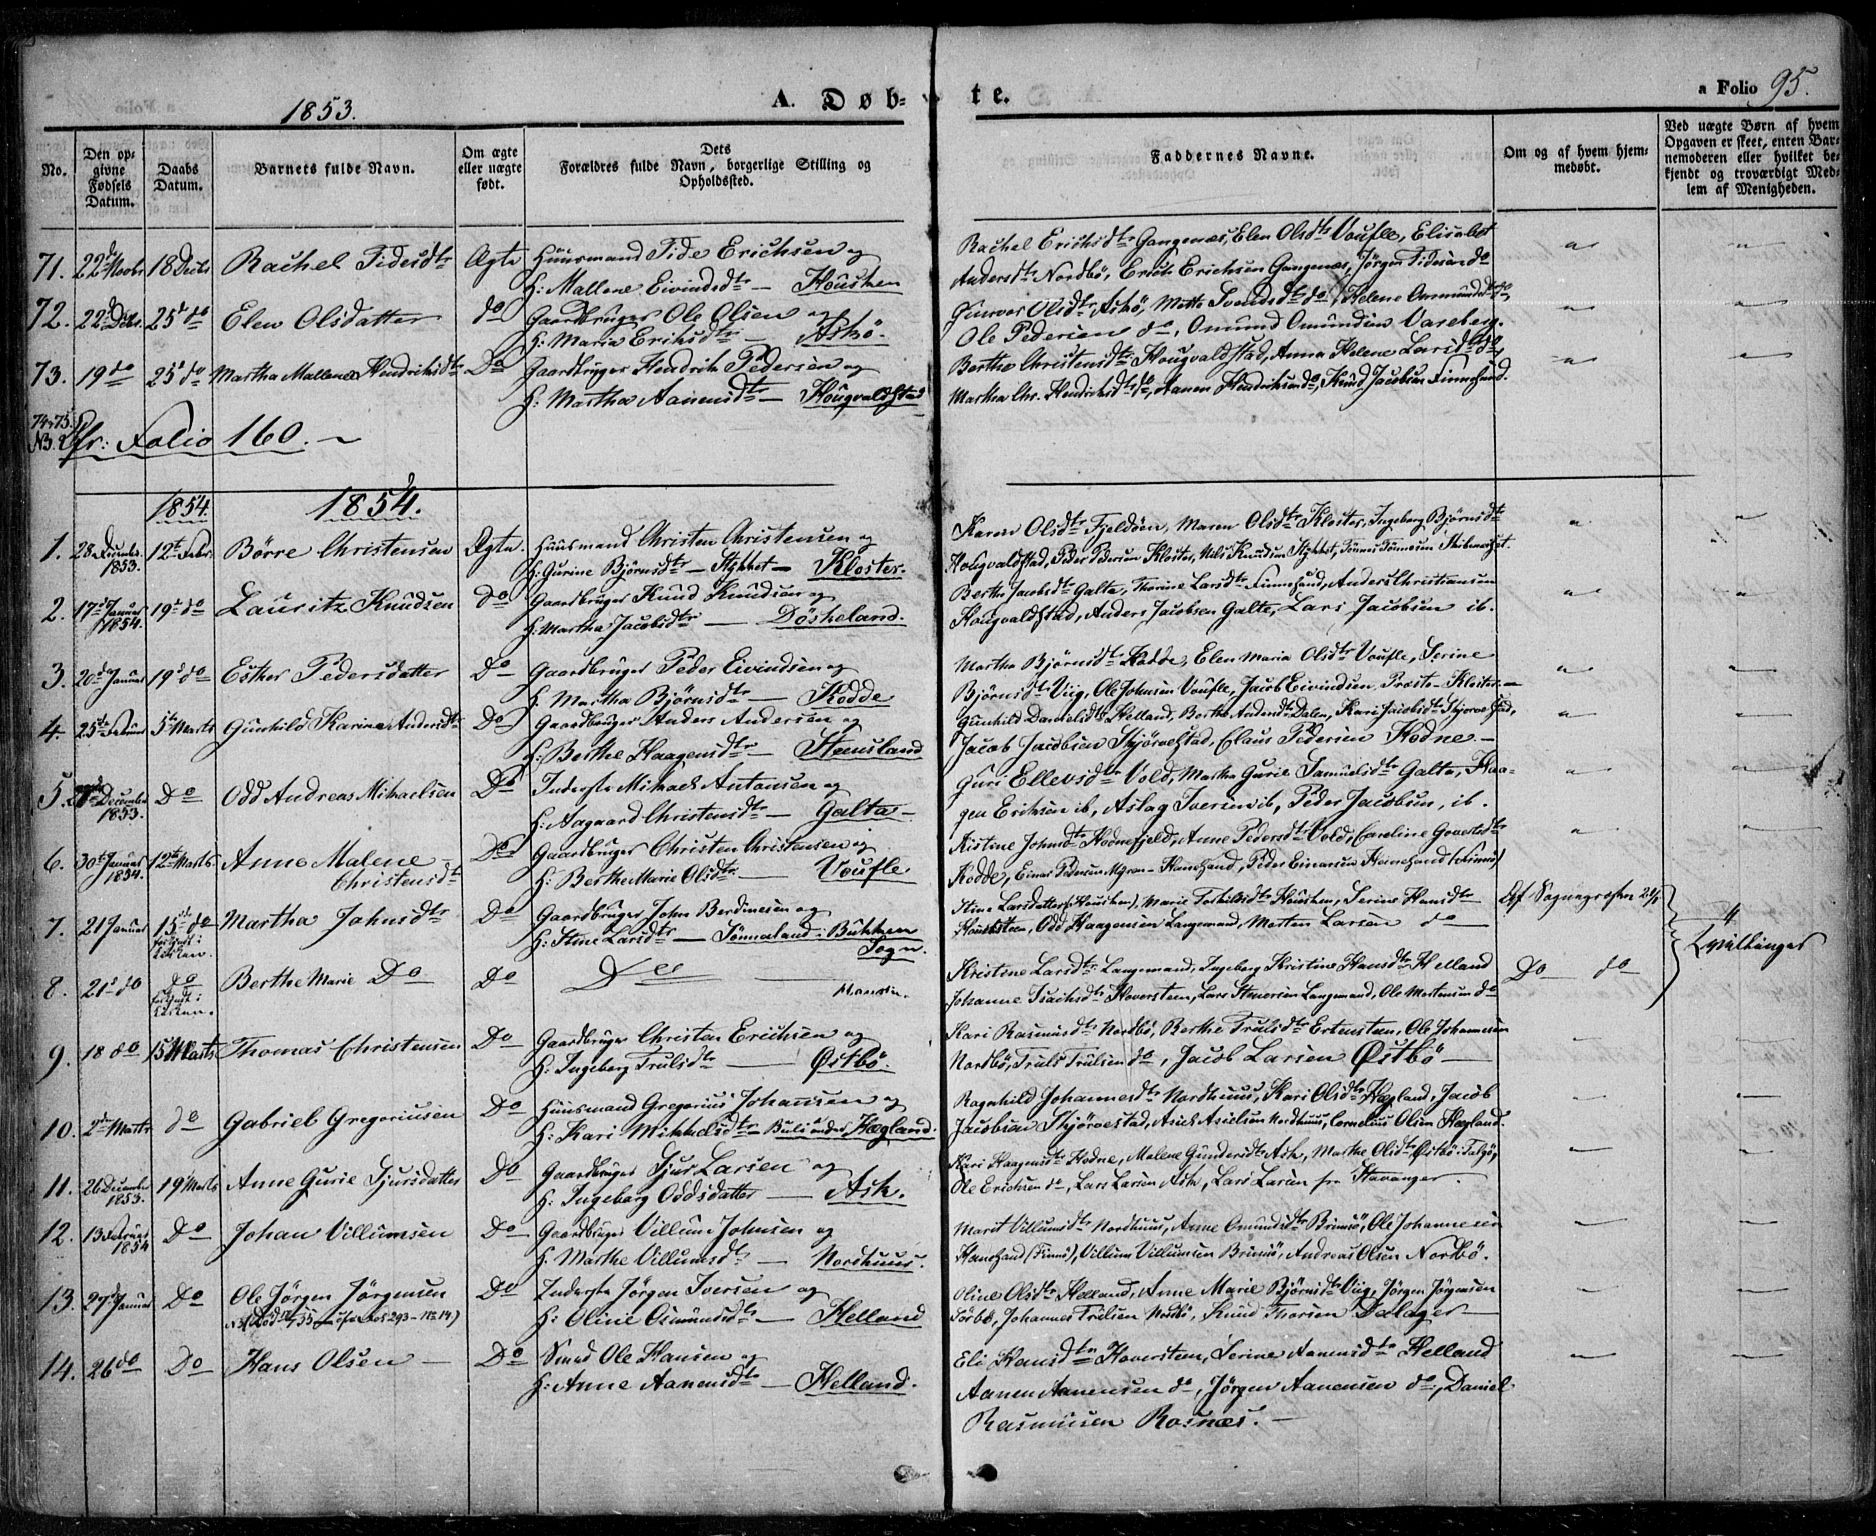 1853.
A. Døb-
te.
a Folio 95.
No.
Den op-
givne
Fødsels
Datum.
Daabs
Datum.
Barnets fulde Navn.
Om ægte
eller uægte
født.
Dets
Forældres fulde Navn, borgerlige Stilling og
Opholdssted.
Faddernes Navne.
Om og af hvem hjem-
medøbt.
Ved uægte Børn af hvem
Opgaven er skeet, enten Bar-
nemoderen eller hvilket be-
kjendt og troværdigt Med-
lem af Menigheden.
71. 22d Novbr 18 Decbr Rachel Tidesdtr Ægte Huusmand Tide Erichsen og
H: Mallene Eivindsdtr — Housken
Rachel Erichsdtr Gangenæs, Elen Olsdtr Voufle, Elisabet
Andersdtr Nordbö, Erich Erichsen Gangenæs, Jörgen Tidesen do
72. 22 Dcbr. 25d do Elen Olsdatter do Gaardbruger Ole Olsen og
H: Maria Erichsdtr — Askö.
Gunvor Olsdtr Askö, Mette Svendsdtr do, Helene Omundsdtr do,
Ole Pedersen do, Omund Omundsen Vareberg.
73. 19 do 25d do Martha Mallene Hendrichsdtr Do Gaardbruger Hendrich Pedersen og
H: Martha Aanensdtr — Hougvaldstad
Berthe Christensdtr Hougvaldstad, Anna Helene Larsdtr do,
Martha Chr. Hendrichsdtr do, Aanen Hendrichsen do, Knud Jacobsen Finnesand.
74 & 75.
NB. Cfr: Folio 160. —
1854. 1854.
1. 28 Decembr. 1853. 12te Febr. Börre Christensen Ægte. Huusmand Christen Christensen og
H: Gurine Björnsdtr — Stykket — Kloster.
Karen Olsdtr Fjeldöen, Maren Olsdtr Kloster, Ingeborg Björnsdtr
Hougvaldstad, Peder Pedersen Kloster, Nils Knudsen Stykket, Tönnes Tönnesen
2. 17d Januar 1854. 19de do Lauritz Knudsen Do Gaardbruger Knud Knudsen og
H: Martha Jacobsdtr — Döskeland.
Berthe Jacobsdtr Galta, Thorine Larsdtr Finnesand, Anders Christiansen
Hougvaldstad, Anders Jacobsen Galte, Lars Jacobsen ib.
3. 20d Januar 19d do Esther Pedersdatter Do Gaardbruger Peder Eivindsen og
H. Martha Björnsdtr — Hodde
Martha Björnsdtr Hodde, Elen Maria Olsdtr Voufle, Serine
Björnsdtr Viig, Ole Johnsen Voufle, Jacob Eivindsen Præste-Kloster. —
4. 25de Febuar 5te Marts Gunhild Karine Andersdtr Do Gaardbruger Anders Andersen og
H: Berthe Haagensdtr — Stensland
Gunhild Danielsdtr Helland, Berthe Andersdtr Dalen, Kari Jacobsdtr Skjörvestad,
Jacob Jacobsen Skjörvestad, Claus Pedersen Hodne —
5. December 1853. Do Odd Andreas Mikaelsen Do Inderste Mikael Antonsen og
H: Aagaard Christensdtr — Galta —
Guri Ellevsdtr Vold, Martha Gurie Samuelsdtr Galta, Haa-
gen Erichsen ib, Aslag Iversen ib, Peder Jacobsen, ib.
6. 30te Januar 1854. 12te Marts. Anne Malene
Christensdtr Do Gaardbruger Christen Christensen og
H: Berthe Marie Olsdtr — Voufle
Kistine Johnsdtr Hodnefjeld, Anne Pedersdtr Vold, Caroline Govertsdtr
Hodde, Einar Pedersen Myren — Hanesand, Peder Einarsen Hanesand (Finnö)
7. 21 Januar 15de do Martha Johnsdtr Do Gaardbruger John Berdinesen og
H: Stine Larsdtr — Sönnaland i Bukken
Sogn.
Stine Larsdatter (Housken), Marie Torkildsdtr Housken, Serine Hansdtr
Haverstein, Odd Haagensen Langemand, Morten Larsen do
Af Sognepræsten 21/1
"
Tvillinger
8. 21d do do Berthe Marie Do Do Do
Kristine Larsdtr Langemand, Ingeborg Kristine Hansdtr Helland
Johanne Isachsdtr Haverstein, Lars Steversen Langemand, Ole Mortensen do
Do do
9. 18 do 15 Marts Thomas Christensen Do Gaardbruger Christen Erichsen og
H: Ingeborg Trulsdtr — Østbö.
Kari Rasmusdtr Nordbö, Berthe Trulsdtr Ertensteen, Ole Johannesen
Nordbö, Truls Trulsen do, Jacob Larsen Østbö —
10. 2den Marts do Gabriel Gregoriusen Do Huusmand Gregorius Johansen og
H: Kari Mikkelsdtr — under Hægland.
Ragnhild Johannesdtr Nordhuus, Kari Olsdtr Hægland, Jacob
Jacobsen Skjörvestad, Asiel Asielsen Nordhuus, Cornelius Olsen Hægland.
11. 26 Decembr 1853. 19 Marts Anne Gurie Sjursdatter Do Gaardbruger Sjur Larsen og
H: Ingeborg Oddsdatter — Ask.
Kari Haagensdtr Hodne, Malene Gundersdtr Ask, Marthe Olsdtr Østbö i Talgö,
Ole Erichsen do, Lars Larsen Ask, Lars Larsen fra Stavanger.
12. 13 Februar 1854 Do Johan Villumsen Do Gaardbruger Villum Johnsen og
H: Marthe Villumsdtr — Nordhuus.
Marit Villumsdtr Nordhuus, Anne Omundsdtr Brimsö, Ole Johannesen
Hanesand (Finnö), Villum Villumsen Brimsö, Andreas Olsen Nordbö.
13. 27d Januar Do Ole Jörgen Jörgensen Do Inderste Jörgen Iversen og
H: Oline Osmundsdtr — Helland
Oline Olsdtr Helland, Anne Marie Björnsdtr Viig, Jörgen Jörgensen
Sörbö, Johannes Trulsen Nordbö, Knud Thorsen Dalager —
14. 26 do Do Hans Olsen — Do Smed Ole Hansen og
H: Anne Aanensdtr — Helland.
Eli Hansdtr Haverstein, Serine Aanensdtr Helland
Aanen Aanensen do, Jörgen Aanensen do, Daniel
Rasmusen Rosnæs. —